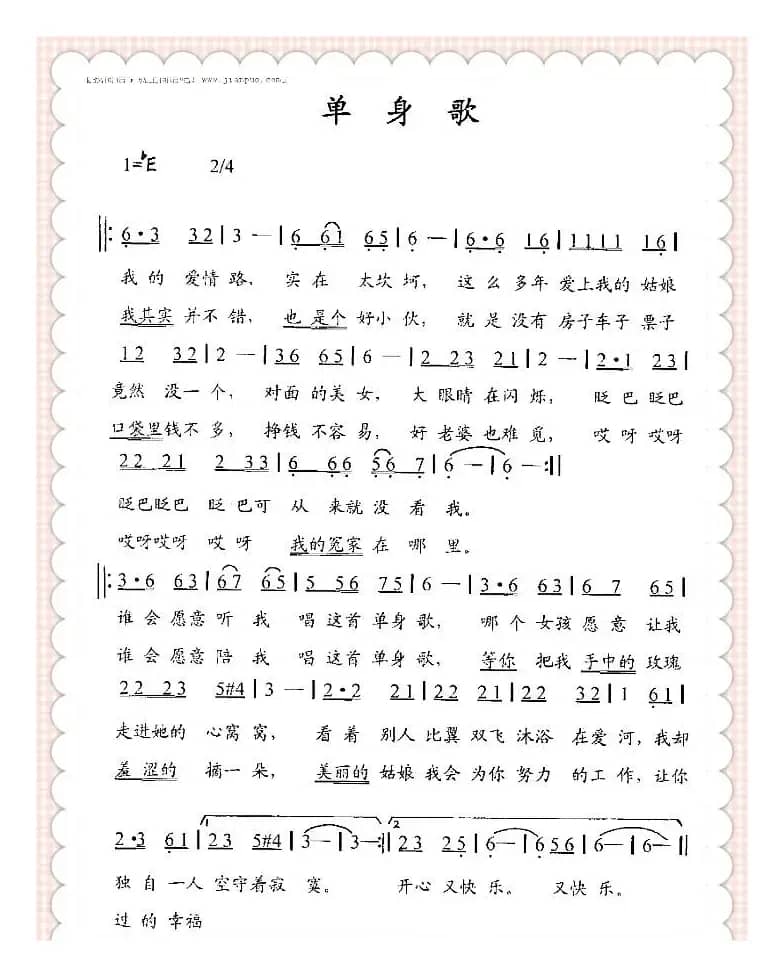 www.jianpuo.com
单 身 歌
1=♭E 2/4
‖: 6·3 32 | 3 — | 6 61 65 | 6 — | 6·6 16 | 1111 16 |
我的 爱情路， 实在 太坎坷， 这么多年 爱上我的 姑娘
我其实 并不错， 也是个 好小伙， 就是没有 房子车子 票子
12 32 | 2 — | 36 65 | 6 — | 2 23 21 | 2 — | 2·1 23 |
竟然 没一个， 对面的美女， 大眼睛在闪烁， 眨巴眨巴
口袋里钱不多， 挣钱不容易， 好老婆也难觅， 哎呀哎呀
22 21 2 33 | 6 66 56 7 | 6 — | 6 — :‖
眨巴眨巴 眨巴可 从来就没看我。
哎呀哎呀 哎呀 我的冤家在哪里。
‖: 3·6 63 | 67 65 | 5 56 75 | 6 — | 3·6 63 | 6 7 65 |
谁会愿意听我 唱这首单身歌， 哪个女孩愿意让我
谁会愿意陪我 唱这首单身歌， 等你 把我 手中的 玫瑰
22 23 5#4 | 3 — | 2·2 21 | 22 21 | 22 32 | 1 61 |
走进她的 心窝窝， 看着 别人比翼双飞沐浴在爱河，我却
羞涩的 摘一朵， 美丽的姑娘我会为你努力 的工作，让你
2·3 61 | 23 5#4 | 3 — | 3 — :‖ 2 23 25 | 6 — | 6 56 5 | 6 — | 6 — ‖
独自一人空守着寂寞。 开心又快乐。 又快乐。
过的幸福